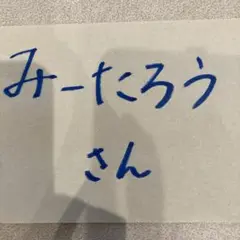 みーたろう
さん